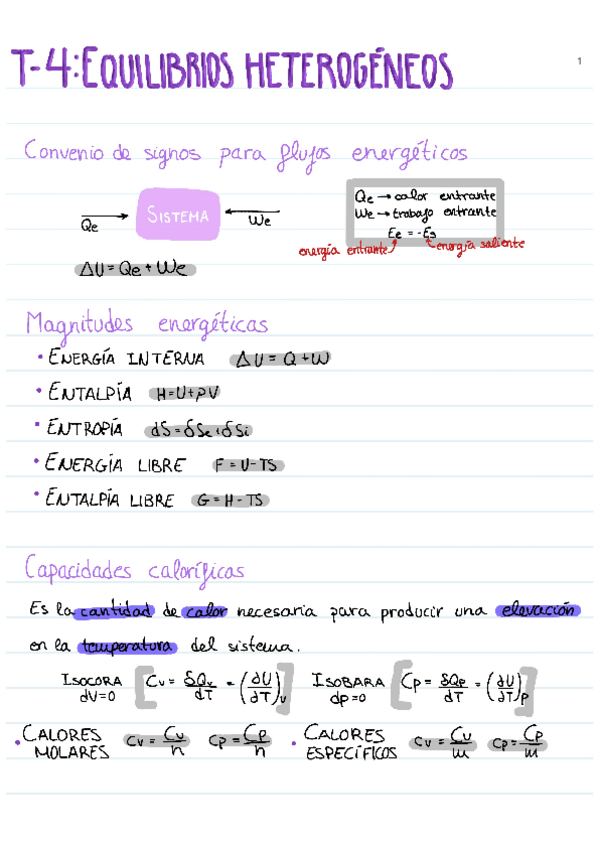 T-4: EQUILIBRIOS HETEROGÉNEOS
1
Convenio de signos para flujos energéticos
Qe SISTEMA We
Qe → calor entrante
We → trabajo entrante
Ee = -Es
energía entrante energía saliente
ΔU = Qe + We
Magnitudes energéticas
• ENERGÍA INTERNA ΔU = Q + W
• ENTALPÍA H = U + PV
• ENTROPÍA dS = δSe + δSi
• ENERGÍA LIBRE F = U - TS
• ENTALPÍA LIBRE G = H - TS
Capacidades caloríficas
Es la cantidad de calor necesaria para producir una elevación
en la temperatura del sistema.
ISOCORA dV=0 [Cv = δQv/dT = (∂U/∂T)v] ISOBARA dp=0 [Cp = δQp/dT = (∂U/∂T)p]
• CALORES MOLARES Cv = Cv/n Cp = Cp/n • CALORES ESPECÍFICOS Cv = Cv/m Cp = Cp/m